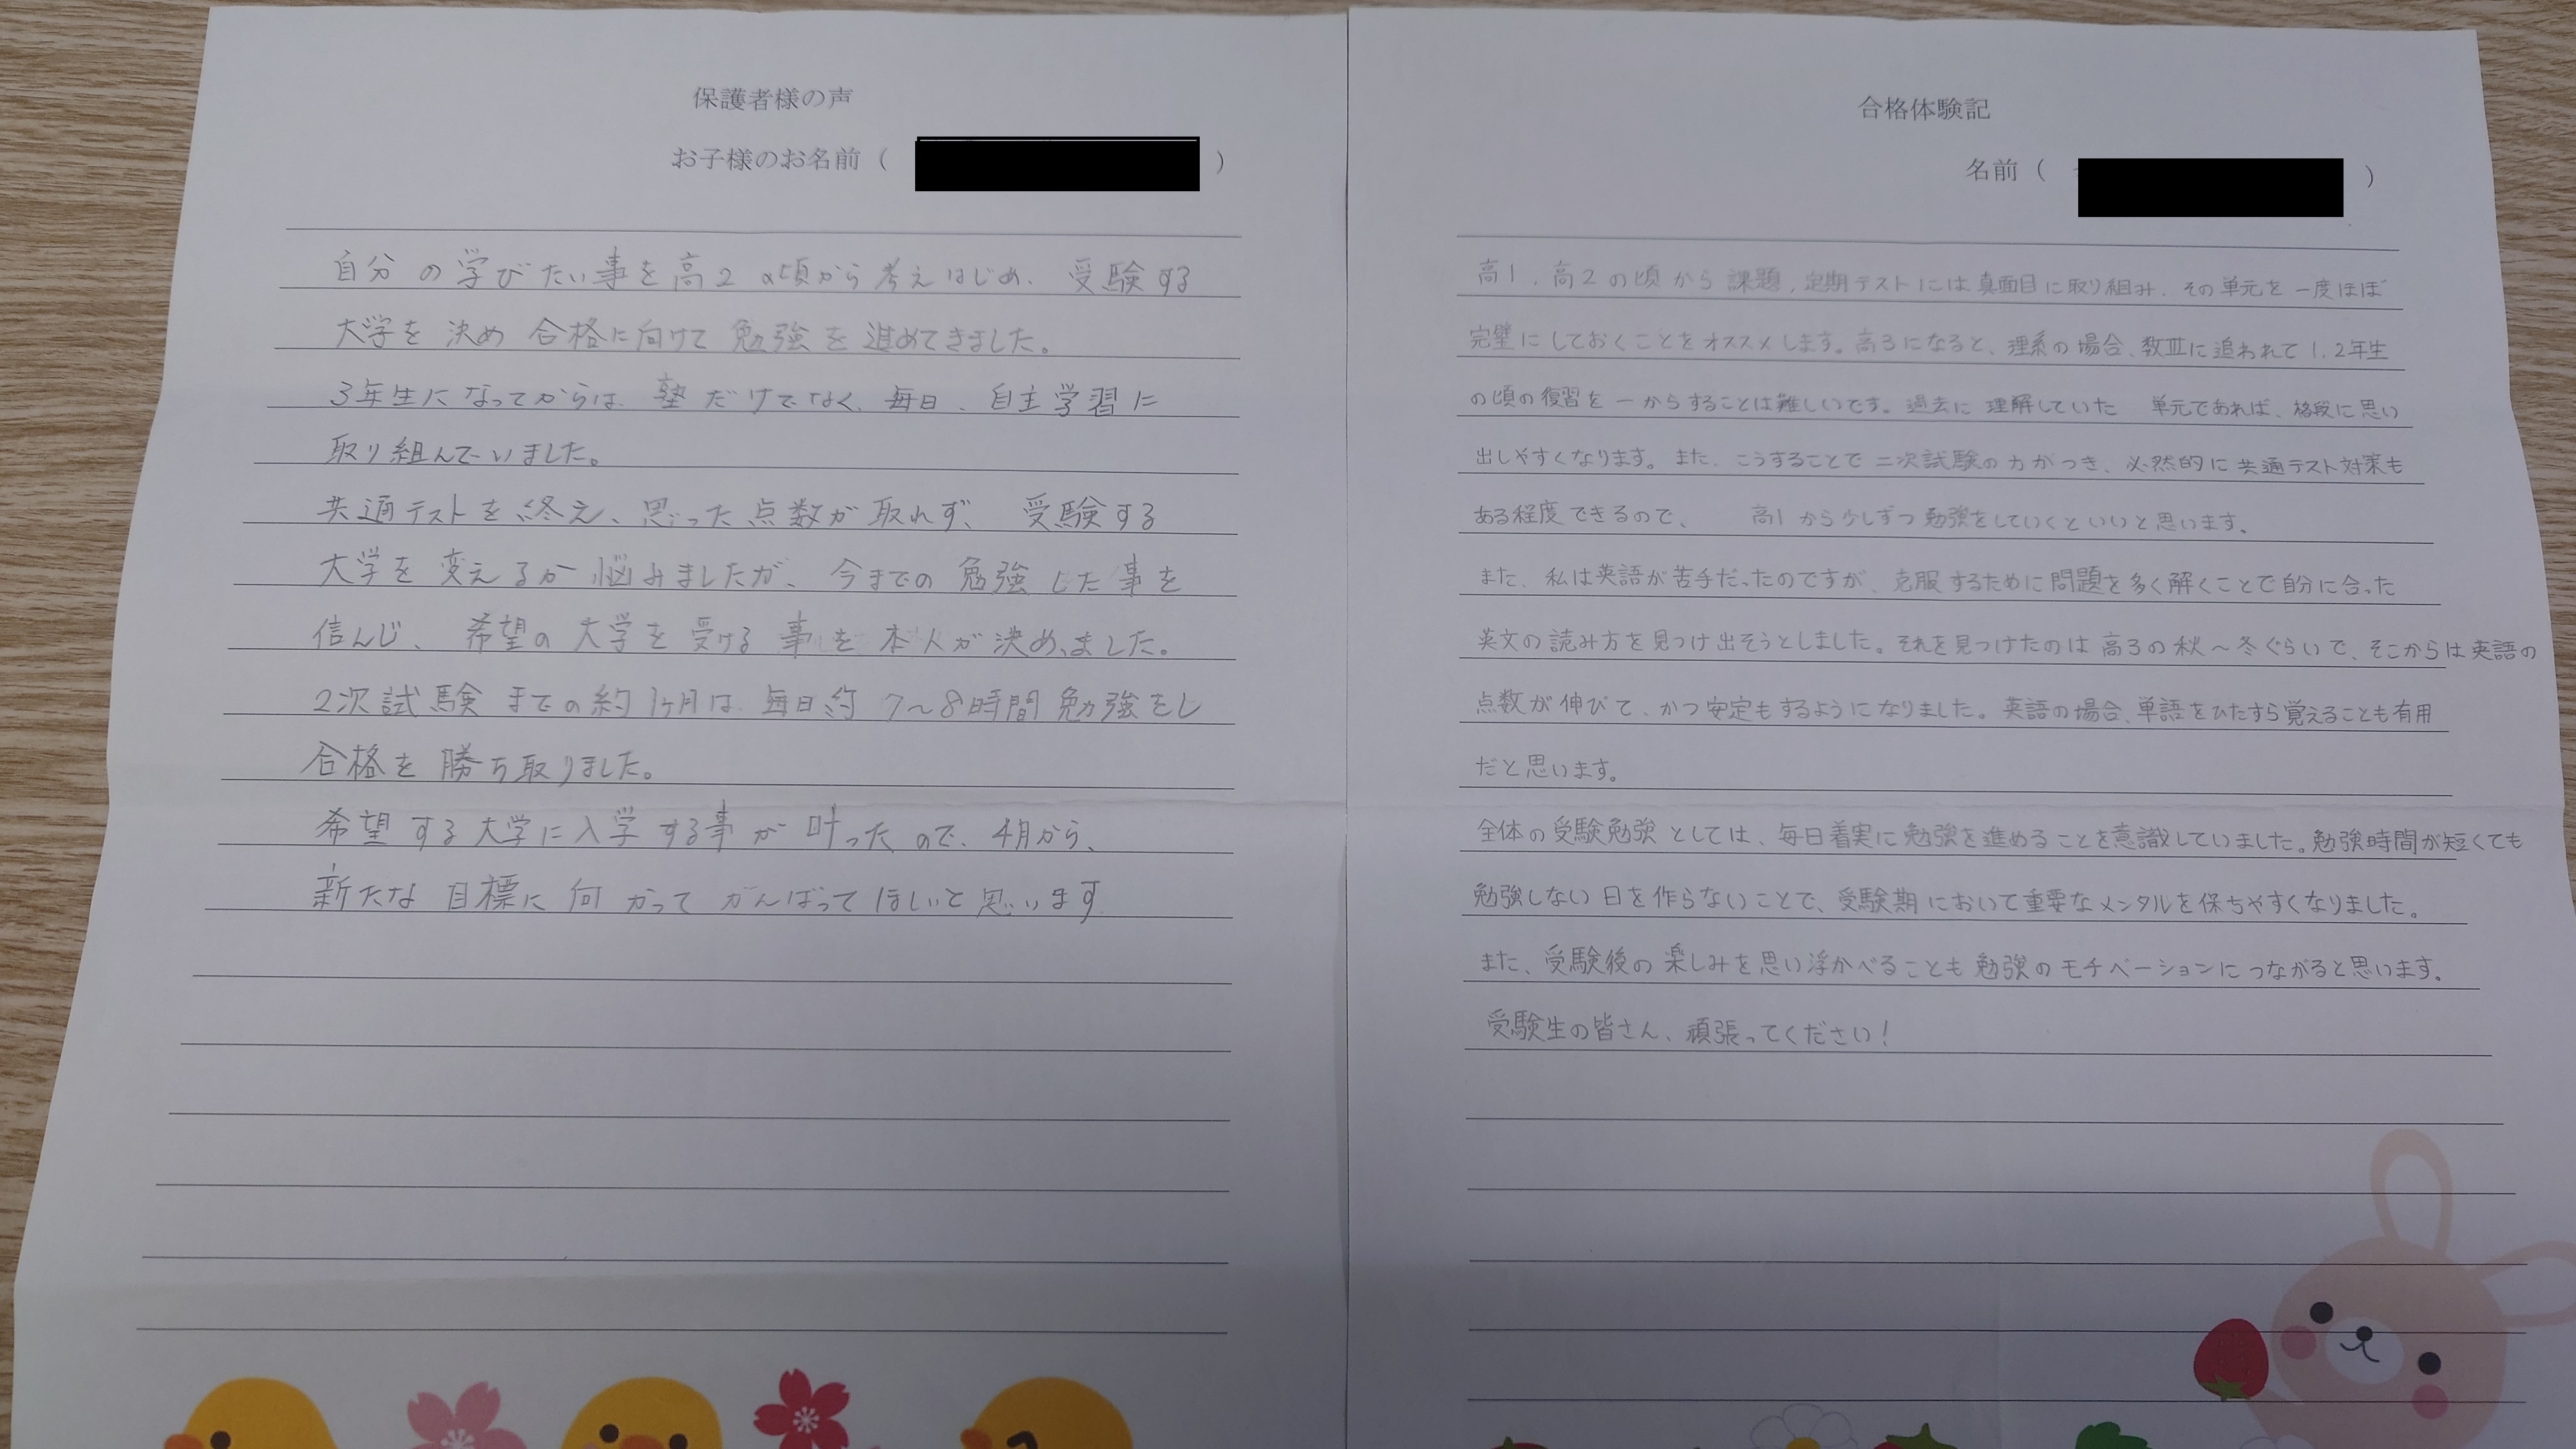 保護者様の声
お子様のお名前（　　　）
自分の学びたい事を高2の頃から考えはじめ、受験する
大学を決め合格に向けて勉強を進めてきました。
3年生になってからは、塾だけでなく、毎日、自主学習に
取り組んでいました。
共通テストを終え、思った点数が取れず、受験する
大学を変えるか悩みましたが、今までの勉強した事を
信んじ、希望の大学を受ける事を本人が決めました。
2次試験までの約1ヶ月は、毎日約7～8時間勉強をし
合格を勝ち取りました。
希望する大学に入学する事が叶ったので、4月から、
新たな目標に向かってがんばってほしいと思います
合格体験記
名前（　　　）
高1,高2の頃から課題,定期テストには真面目に取り組み、その単元を一度ほぼ
完璧にしておくことをオススメします。高3になると、理系の場合、数Ⅲに追われて1,2年生
の頃の復習を一からすることは難しいです。過去に理解していた　単元であれば、格段に思い
出しやすくなります。また、こうすることで二次試験の力がつき、必然的に共通テスト対策も
ある程度できるので、　高1から少しずつ勉強をしていくといいと思います。
また、私は英語が苦手だったのですが、克服するために問題を多く解くことで自分に合った
英文の読み方を見つけ出そうとしました。それを見つけたのは高3の秋～冬ぐらいで、そこからは英語の
点数が伸びて、かつ安定もするようになりました。英語の場合、単語をひたすら覚えることも有用
だと思います。
全体の受験勉強としては、毎日着実に勉強を進めることを意識していました。勉強時間が短くても
勉強しない日を作らないことで、受験期において重要なメンタルを保ちやすくなりました。
また、受験後の楽しみを思い浮かべることも勉強のモチベーションにつながると思います。
受験生の皆さん、頑張ってください！